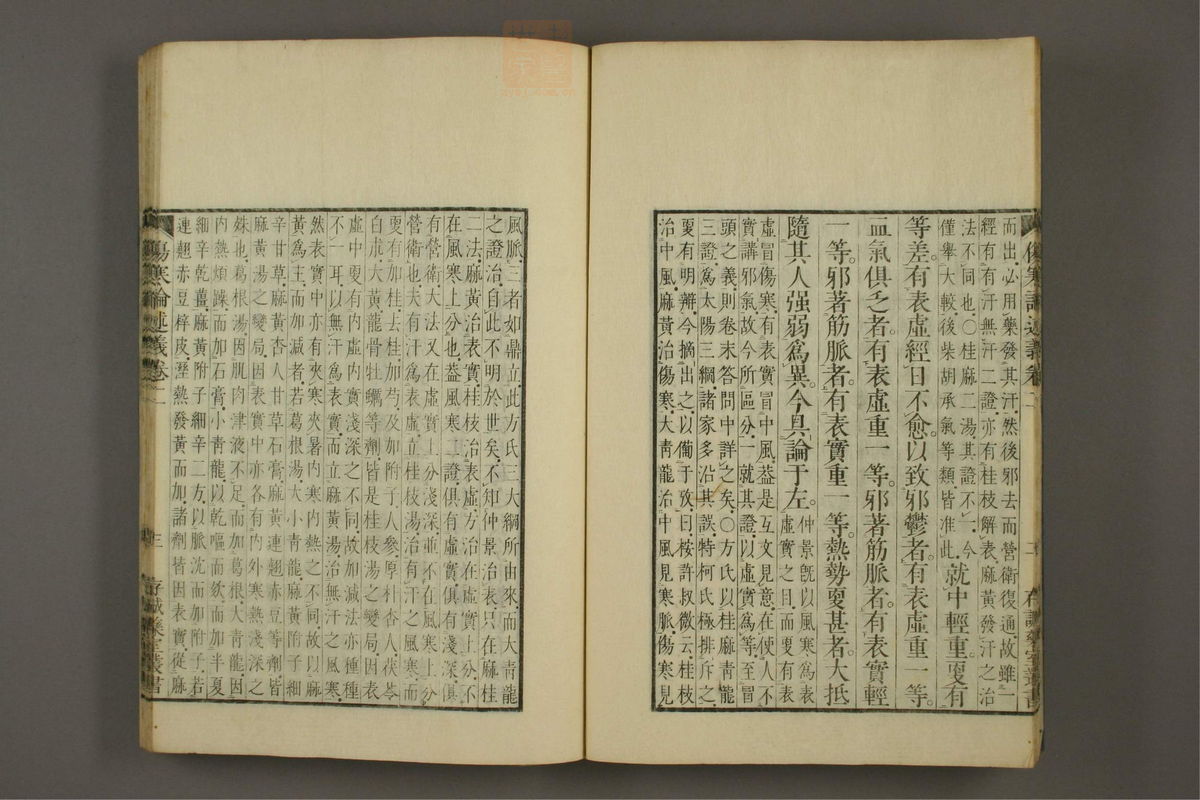 而出必用藥發其汗然後邪去而營衛復通故雖一
經有有汗無汗二證亦有桂枝解表麻黃發汗之治
法不同也○桂麻二湯其證不一今
僅舉大較後柴胡承氣等類皆准此就中輕重更有
等差有表虛經日不愈以致邪鬱者有表虛重一等
血氣俱乏者有表虛重一等邪著筋脈者有表實輕
一等邪著筋脈者有表實重一等熱勢更甚者大抵
隨其人强弱爲異今具論于左仲景旣以風寒爲表
虛實之目而更有表
虛冒傷寒有表實冒中風葢是互文見意在使人不
實講邪氣故今所區分一就其證以虛實爲等至冒
頭之義則卷末答問中詳之矣○方氏以桂麻青龍
三證爲太陽三綱諸家多沿其誤特柯氏極排斥之
更有明辨今摘出之以備于攷曰按許叔微云桂枝
治中風麻黃治傷寒大青龍治中風見寒脈傷寒見
傷寒論述義卷二
二
存誠藥室叢書
風脈三者如鼎立此方氏三大綱所由來而大青龍
之證治自此不明於世矣不知仲景治表只在麻桂
二法麻黃治表實桂枝治表虛方治在虛實上分不
在風寒上分也葢風寒二證俱有虛實俱有淺深俱
有營衛大法又在虛實上分淺深並不在風寒上分
營衛也夫有汗爲表虛立桂枝湯治有汗之風寒而
更有加桂去桂加芍及加附子人參厚朴杏人茯苓
白虎大黃龍骨牡蠣等劑皆是桂枝湯之變局因表
虛中更有內虛內實淺深之不同故加減法亦種種
不一耳以無汗爲表實而立麻黃湯治無汗之風寒
然表實中亦有夾寒夾暑內寒內熱之不同故以麻
黃爲主而加減者若葛根湯大小青龍麻黃附子細
辛甘草麻黃杏人甘草石膏麻黃連翹赤豆等劑皆
麻黃湯之變局因表實中亦各有內外寒熱淺深之
殊也葛根湯因肌肉津液不足而加葛根大青龍因
內熱煩躁而加石膏小青龍以乾嘔而欬而加半夏
細辛乾薑麻黃附子細辛二方以脈沈而加附子若
連翹赤豆梓皮溼熱發黃而加諸劑皆因表實從麻
傷寒論述義卷二
三
存誠藥室叢書